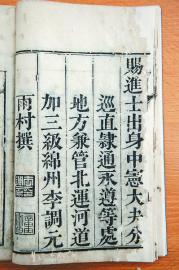 賜進士出身中憲大夫分
巡直隸通永遵等處
地方兼管北運河道
加三級綿州李調元
雨村撰